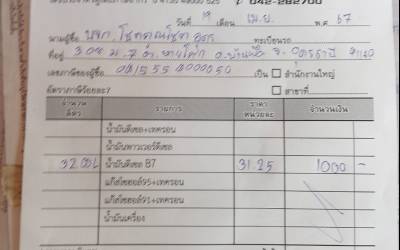 โทร 042-282700
วันที่ 19 เดือน เม.ย. พ.ศ 67
นามผู้ซื้อ บจก. โชคคูณโชค อุดร ทะเบียนรถ
ที่อยู่ 308 ม.7 ต. อ.บ้านผือ จ.อุดรธานี
เลขภาษีของผู้ซื้อ เป็น ☐ สำนักงานใหญ่
อัตราภาษีร้อยละ7 ☐ สาขาที่
จำนวนลิตร รายการ ราคาหน่วยละ จำนวนเงิน
น้ำมันดีเซล+เทครอน
น้ำมันพาวเวอร์ดีเซล
32.00L น้ำมันดีเซล B7 31.25 1000 -
แก๊สโซฮอล์95+เทครอน
แก๊สโซฮอล์91+เทครอน
น้ำมันเครื่อง